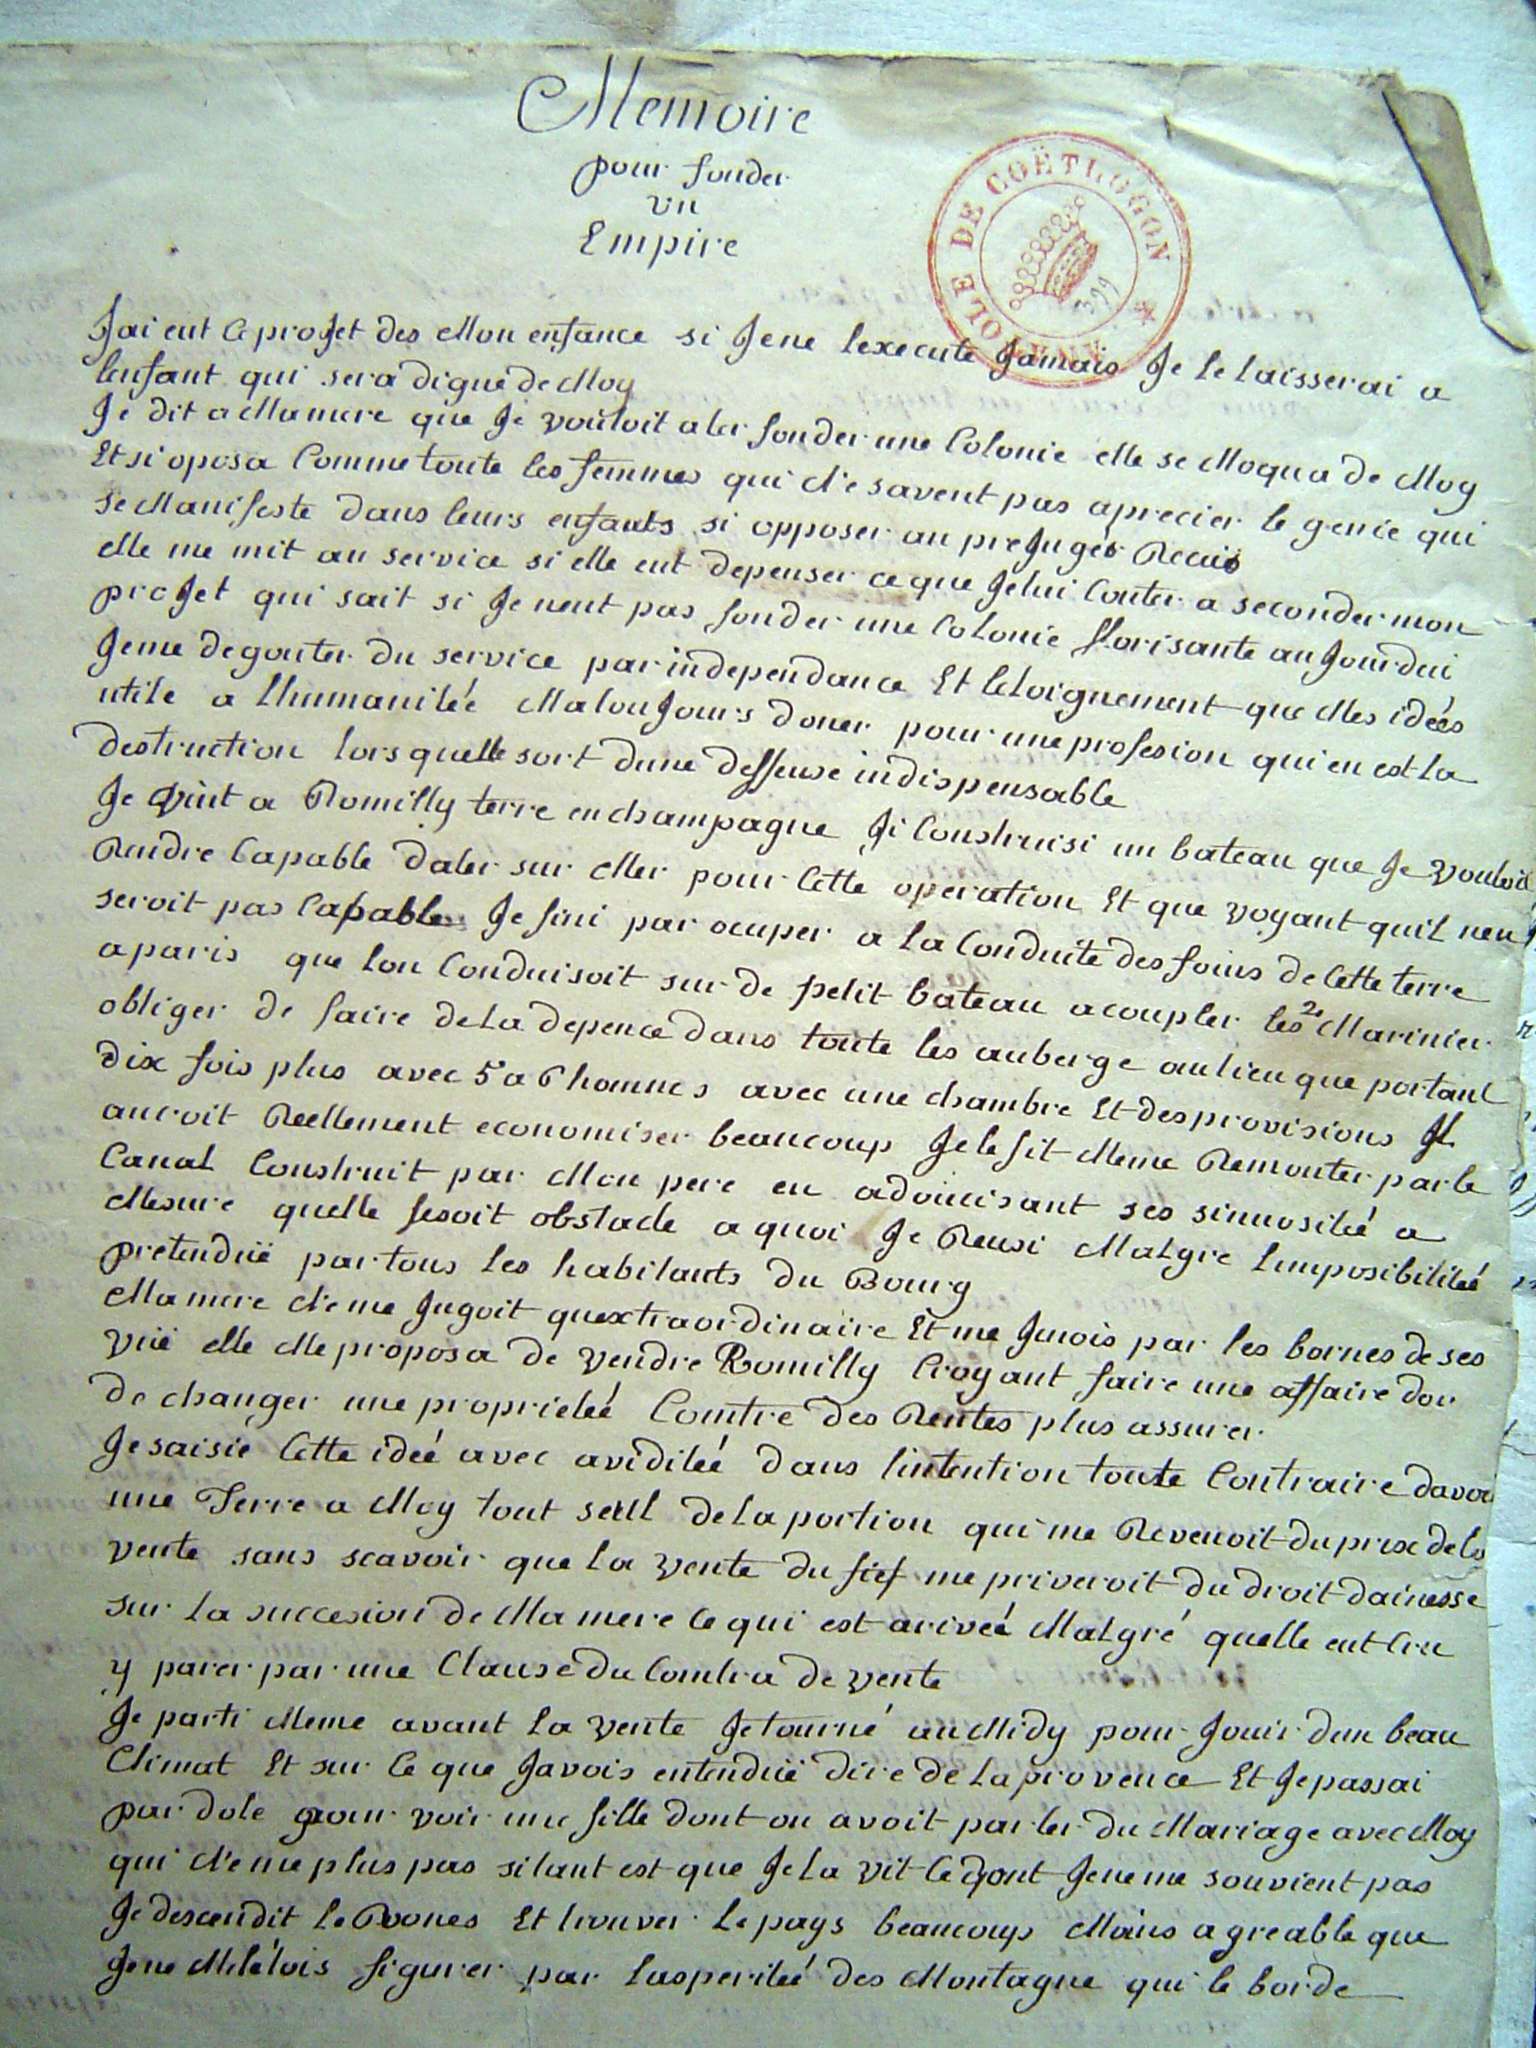 Memoire
pour fonder
un
Empire
OLE DE COËTLOGON
399
Jai eut ce proJet des Mon enfance si Je ne lexecute Jamais Je le laisserai a
lenfant qui sera digne de Moy
Je dit a Ma mere que Je vouloit aler fonder une Colonie elle se Moqua de Moy
Et si oposa Comme toute les femmes qui Ne savent pas aprecier le genie qui
se Manifeste dans leurs enfants si opposer au preJugés Recuis
elle me mit au service si elle eut depenser ce que Je lui Couter a seconder mon
proJet qui sait si Je neut pas fonder une Colonie florisante auJourdui
Je me degouter du service par independance Et leloignement que Mes idées
utile a Lhumanitéé Ma touJours doner pour une profesion qui en est la
destruction lors quelle sort dune deffense indispensable
Je Vint a Romilly terre en champagne Ji Construisi un bateau que Je voulois
Rendre Capable daler sur Mer pour Cette operation Et que voyant quil nen
seroit pas Capable Je fini par ocuper a la Conduite des foins de Cette terre
a paris que lon Conduisoit sur de petit bateau acoupler les 2 Marinier
obliger de faire de la depence dans toute les auberge au lieu que portant
dix fois plus avec 5 a 6 hommes avec une chambre Et des provisions Il
auroit Reellement economiser beaucoup Je le fit Meme Remonter par le
Canal Construit par Mon pere en adoucisant ses sinuositéé a
Mesure quelle fesoit obstacle a quoi Je Reusi Malgre Limposibilitéé
pretenduë par tous les habitants du Bourg
Ma mere Ne me Jugoit quextraordinaire Et me Junois par les bornes de ses
vuë elle Me proposa de vendre Romilly Croyant faire une affaire dor
de changer une proprietéé Contre des Rentes plus assurer
Je saisie Cette idéé avec aviditéé dans lintention toute Contraire davoir
une Terre a Moy tout seul de la portion qui me Revenoit du prix de la
vente sans scavoir que la vente du fief me priveroit du droit dainesse
sur la succesion de Ma mere ce qui est arivéé Malgré quelle eut Cru
y parer par une Clause du Contra de vente
Je parti Meme avant la vente Je tourné au Midy pour Jouir dun beau
Climat Et sur Ce que Javois entenduë dire de la provence Et Je passai
par dole pour voir une fille dont on avoit parler du Mariage avec Moy
qui Ne me plus pas si tant est que Je la vit Ce dont Je ne me souvient pas
Je descendit le Rones Et trouver le pays beaucoup Moins agreable que
Je ne Metétois figurer par lasperitéé des Montagne qui le borde